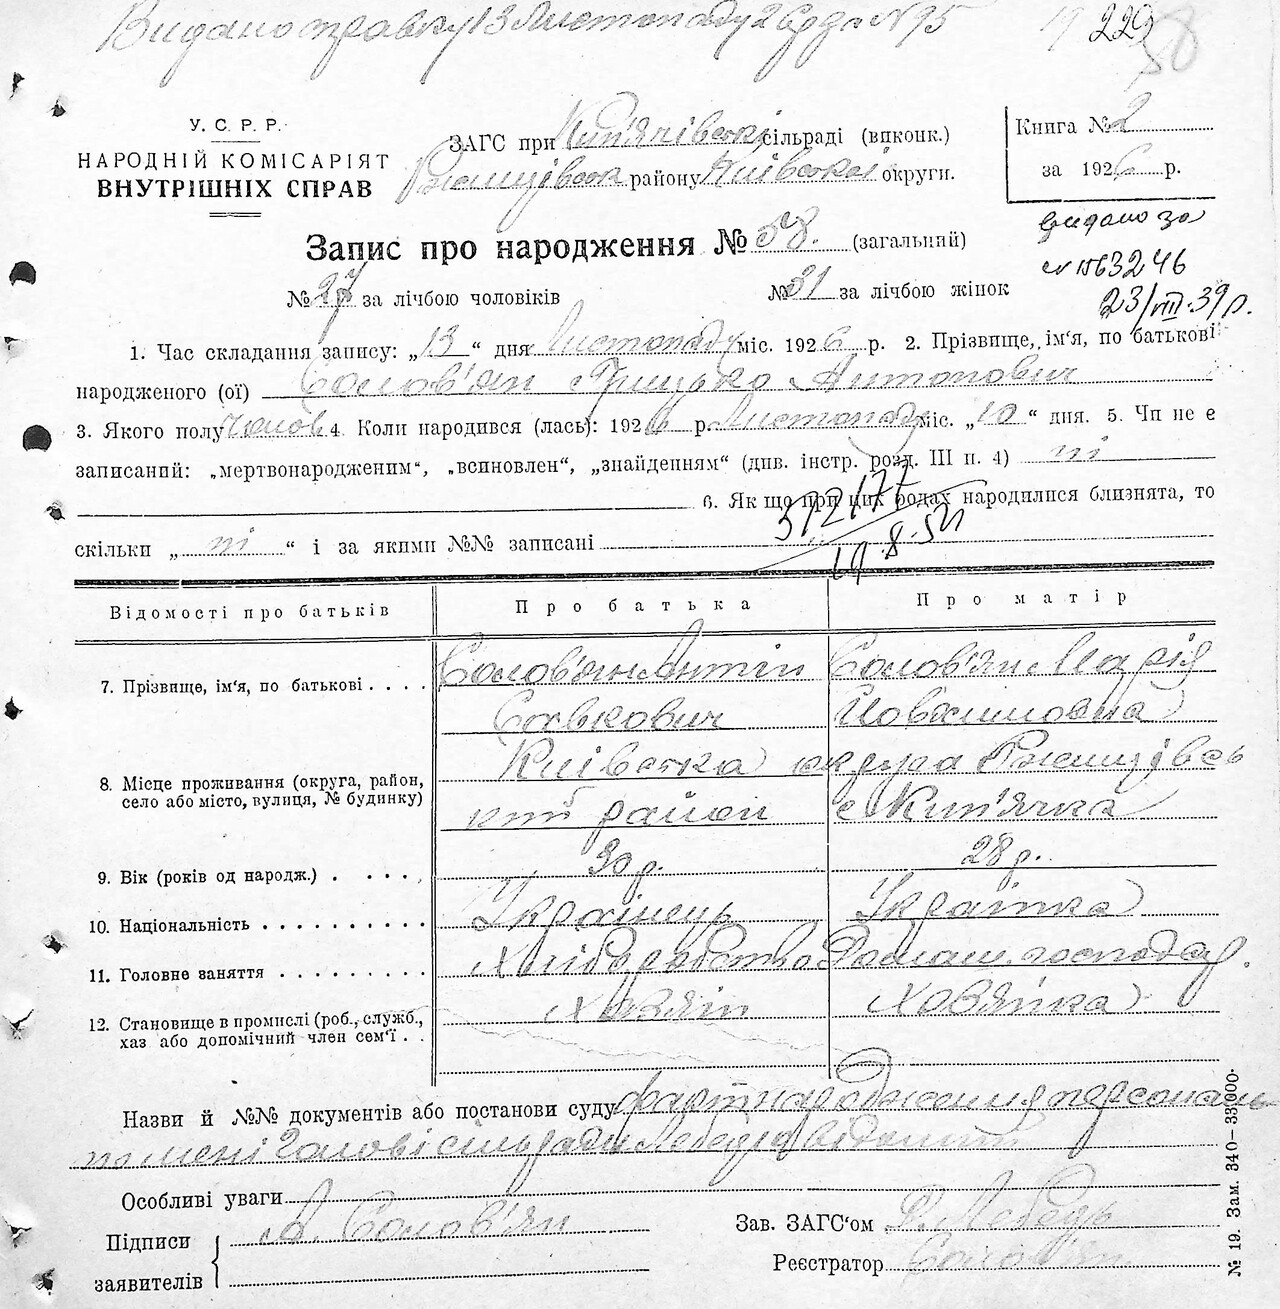 Видано справку 13 Листопаду 26 года N 95
229
58
У. С. Р. Р.
НАРОДНІЙ КОМІСАРІЯТ
ВНУТРІШНІХ СПРАВ
ЗАГС при Кип'ячівській сільраді (виконк.)
Ржищівськ району Київської округи.
Книга № 2
за 1926 р.
видано за
N 1563246
23/VIII.39 р.
Запис про народження № 58. (загальний)
№ 27 за лічбою чоловіків № 31 за лічбою жінок
1. Час складання запису: „13“ дня Листопаду міс. 1926 р. 2. Прізвище, ім'я, по батькові
народженого (ої) Солов'ян Грицько Антонович
3. Якого полу Чолов. 4. Коли народився (лась): 1926 р. Листопаду міс. „10“ дня. 5. Чи не є
записаний: „мертвонародженим“, „всиновлен“, „знайденням“ (див. інстр. розд. III п. 4) ні
6. Як що при цих родах народилися близнята, то
312177
скільки „ні“ і за якими №№ записані
19.8.54
Відомості про батьків Про батька Про матір
7. Прізвище, ім'я, по батькові Солов'ян Антін Солов'ян Марія
Юхимовна
8. Місце проживання (округа, район, село або місто, вулиця, № будинку) Київська округа Ржищівсь
кий район с Кип'ячка
9. Вік (років од народж.) 30 р. 28 р.
10. Національність Українець Українка
11. Головне заняття Хліборобство Домаш. господар.
12. Становище в промислі (роб., служб., хаз або допомічний член сем'ї Хазяїн Хазяйка
Назви й №№ документів або постанови суду факт народження персональ
но мені Голові сільради Лебедю відомий
Особливі уваги
Підписи А. Солов'ян
заявителів
Зав. ЗАГС'ом Лебедь
Реєстратор Солов'ян
№ 19. Зам. 340–33000.